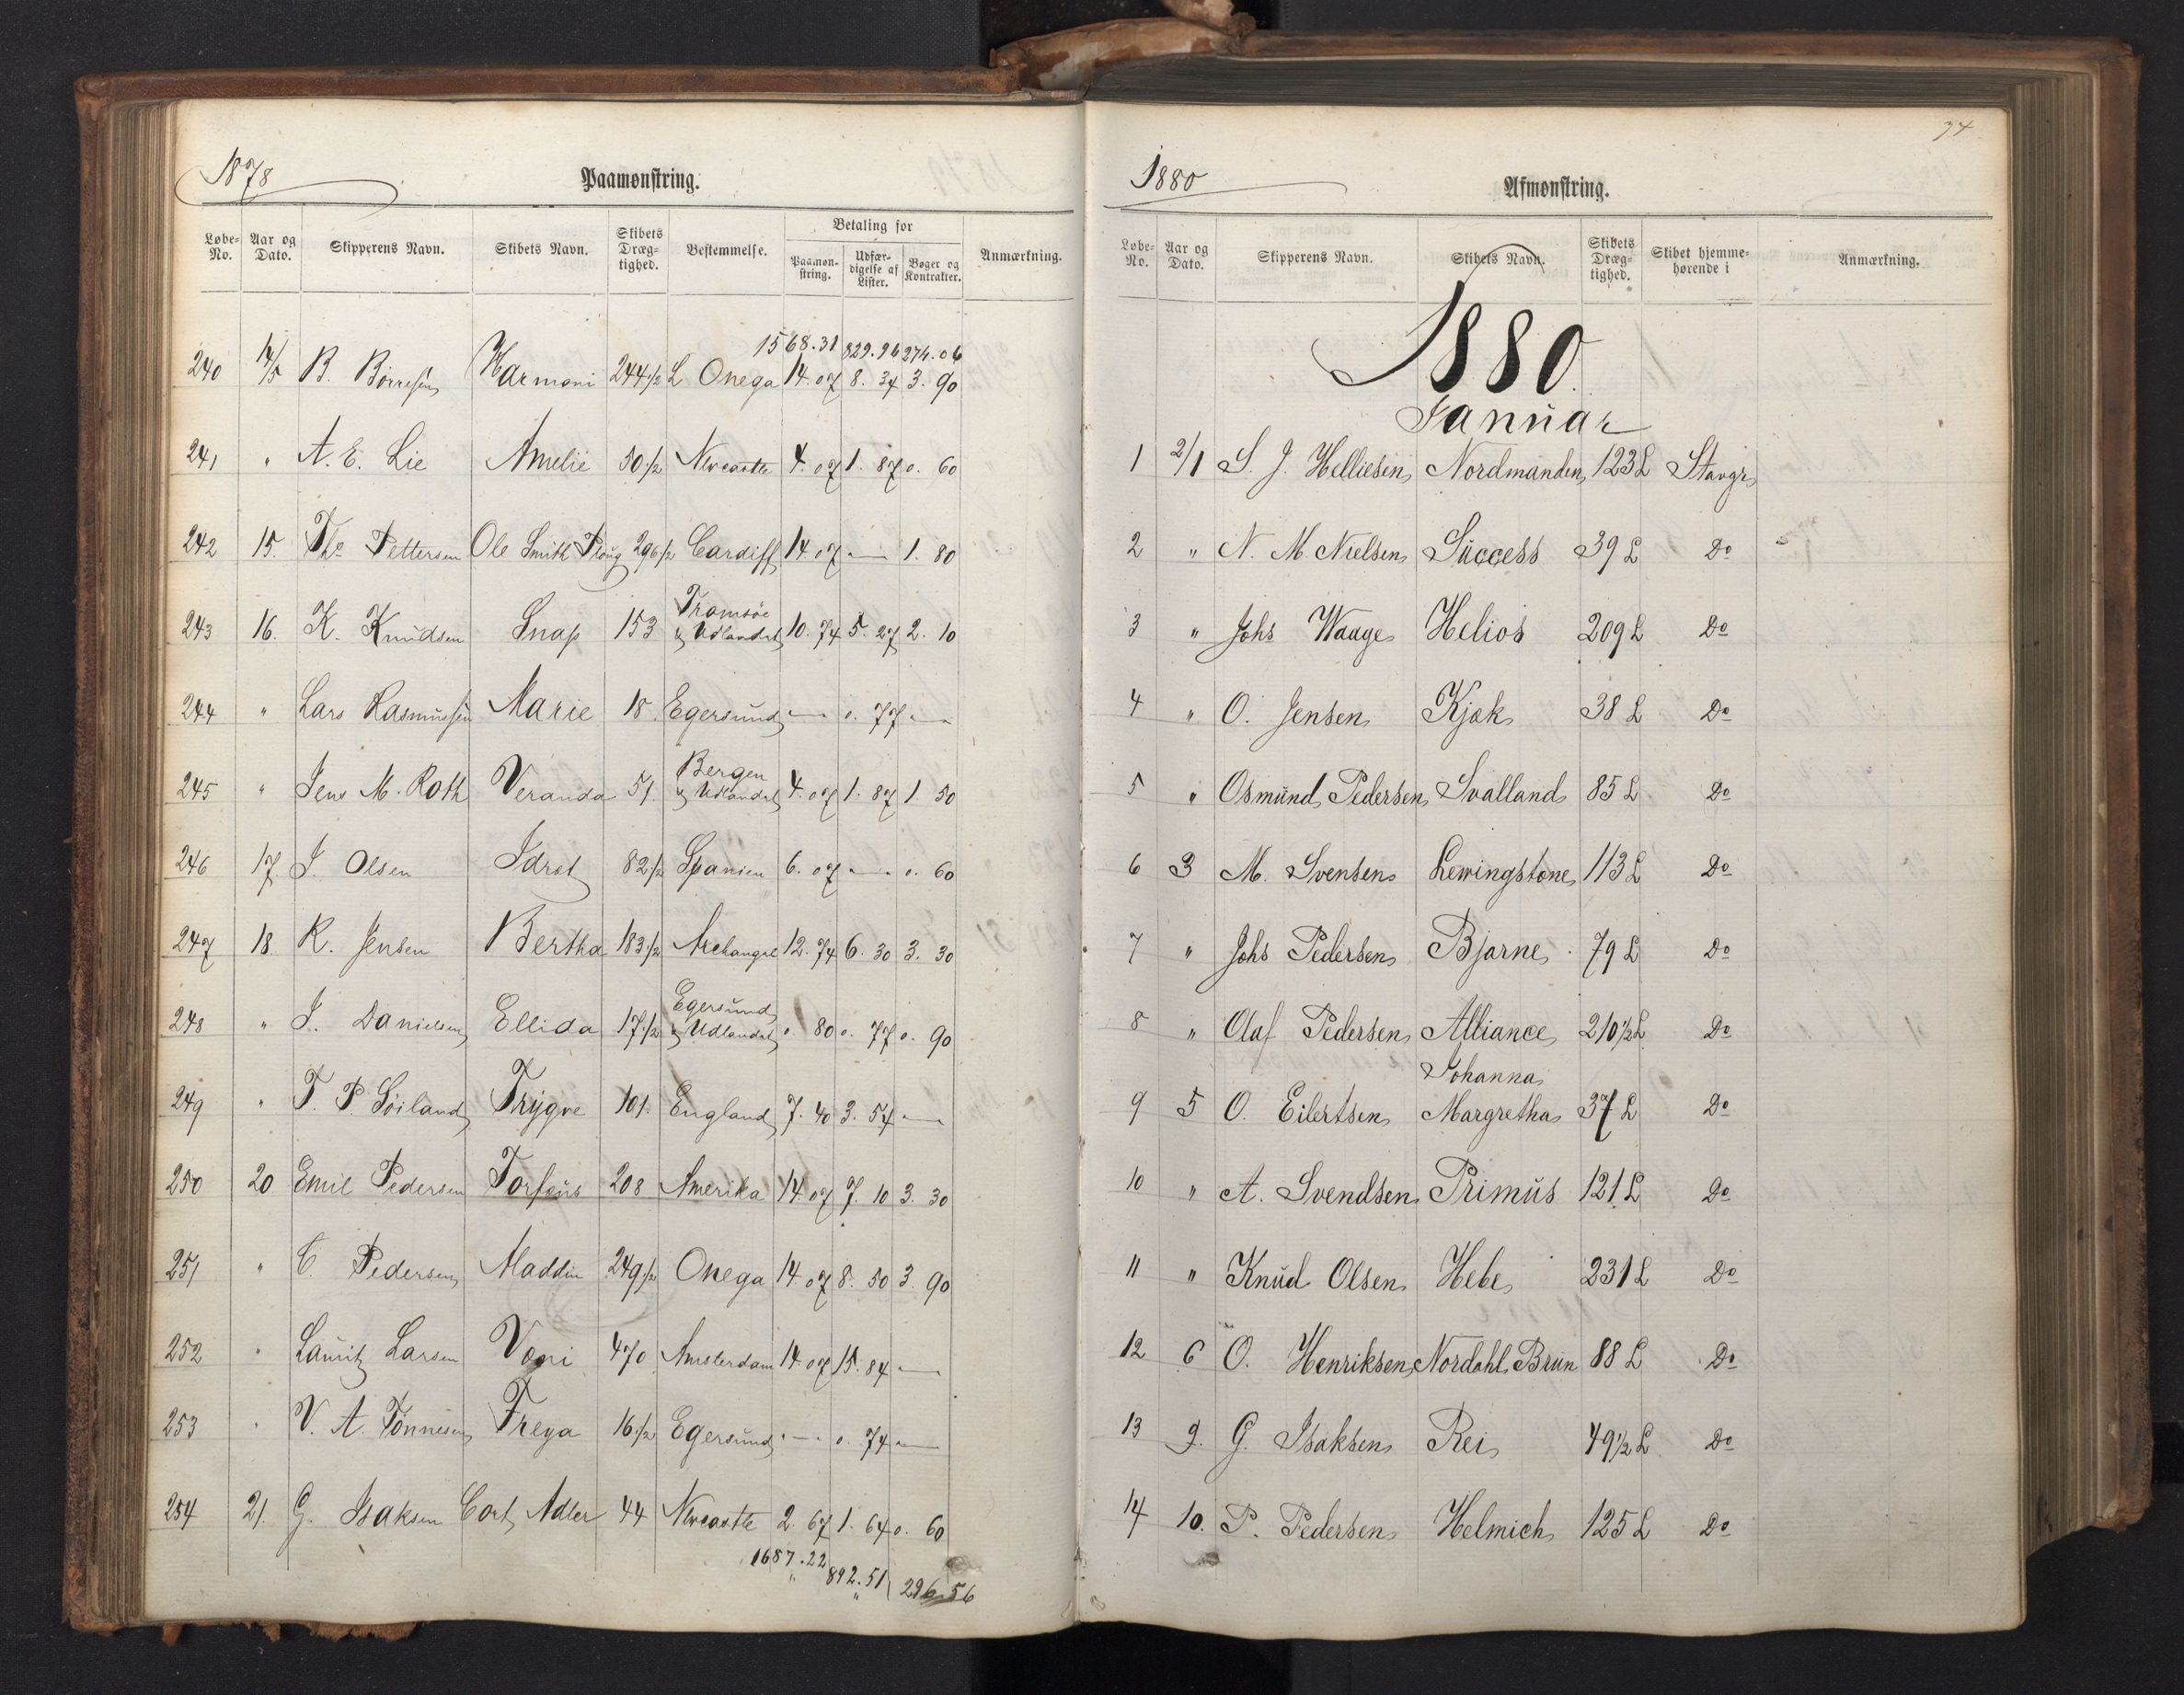 1878
Paamønstring.
Løbe-No. Aar og Dato. Skipperens Navn. Skibets Navn. Skibets Dræg-tighed. Bestemmelse. Betaling for Paamøn-string. Udfær-digelse af Lister. Bøger og Kontrakter. Anmærkning.
1568.31 829.96 274.06
240 14/5 B. Börresen Harmoni 244 1/2 L Onega 14.07 8.34 3.90
241 " A. E. Lie Amelie 50 1/2 Newcastle 4.07 1.87 0.60
242 15. Ths Pettersen Ole Smith Ploug 296 1/2 Cardiff 14.07 — 1.80
243 16. K. Knudsen Snap 153 Tromsöe & Udlandet 10.74 5.27 2.10
244 " Lars Rasmussen Marie 18. Egersund — 0.77 —
245 " Jens M. Roth Veranda 51. Bergen & Udlandet 4.07 1.87 1.50
246 17 J. Olsen Idræt 82 1/2 Spanien 6.07 — 0.60
247 18. R. Jensen Bertha 183 1/2 Archangel 12.74 6.30 3.30
248 " J. Danielsen Ellida 17 1/2 Egersund & Udlandet 0.80 0.77 0.90
249 " T. P. Söiland Trygve 101. England 7.40 3.54 —
250 20 Emil Pedersen Torfæus 208 Amerika 14.07 7.10 3.30
251 " C. Pedersen Maddin 249 1/2 Onega 14.07 8.50 3.90
252 " Lauritz Larsen 470 Amsterdam 14.07 15.84 —
253 " V. A. Tönnesen Freya 16 1/2 Egersund — 0.74 —
254 21. G. Isaksen Cort Adler 44 Newcastle 2.67 1.64 0.60
1687.22 892.51 296.56
74
1880
Afmønstring.
Løbe-No. Aar og Dato. Skipperens Navn. Skibets Navn. Skibets Dræg-tighed. Skibet hjemme-hørende i Anmærkning.
1880.
Januar
1 2/1 S. J. Helliesen Nordmanden 123 L Stavgr
2 " N. M. Nielsen Success 39 L Do
3 " Johs Waage Helios 209 L Do
4 " O. Jensen Kjæk 38 L Do
5 " Osmund Pedersen Svalland 85 L Do
6 3 M. Svensen Lewingstone 113 L Do
7 " Johs Pedersen Bjarne 79 L Do
8 " Olaf Pedersen Alliance 210 1/2 L Do
9 5 O. Eilertsen Johanna Margretha 37 L Do
10 " A. Svendsen Primus 121 L Do
11 " Knud Olsen Hebe 231 L Do
12 6 O. Henriksen Nordahl Brun 88 L Do
13 9. G. Isaksen Rei 49 1/2 L Do
14 10. P. Pedersen Helmich 125 L Do